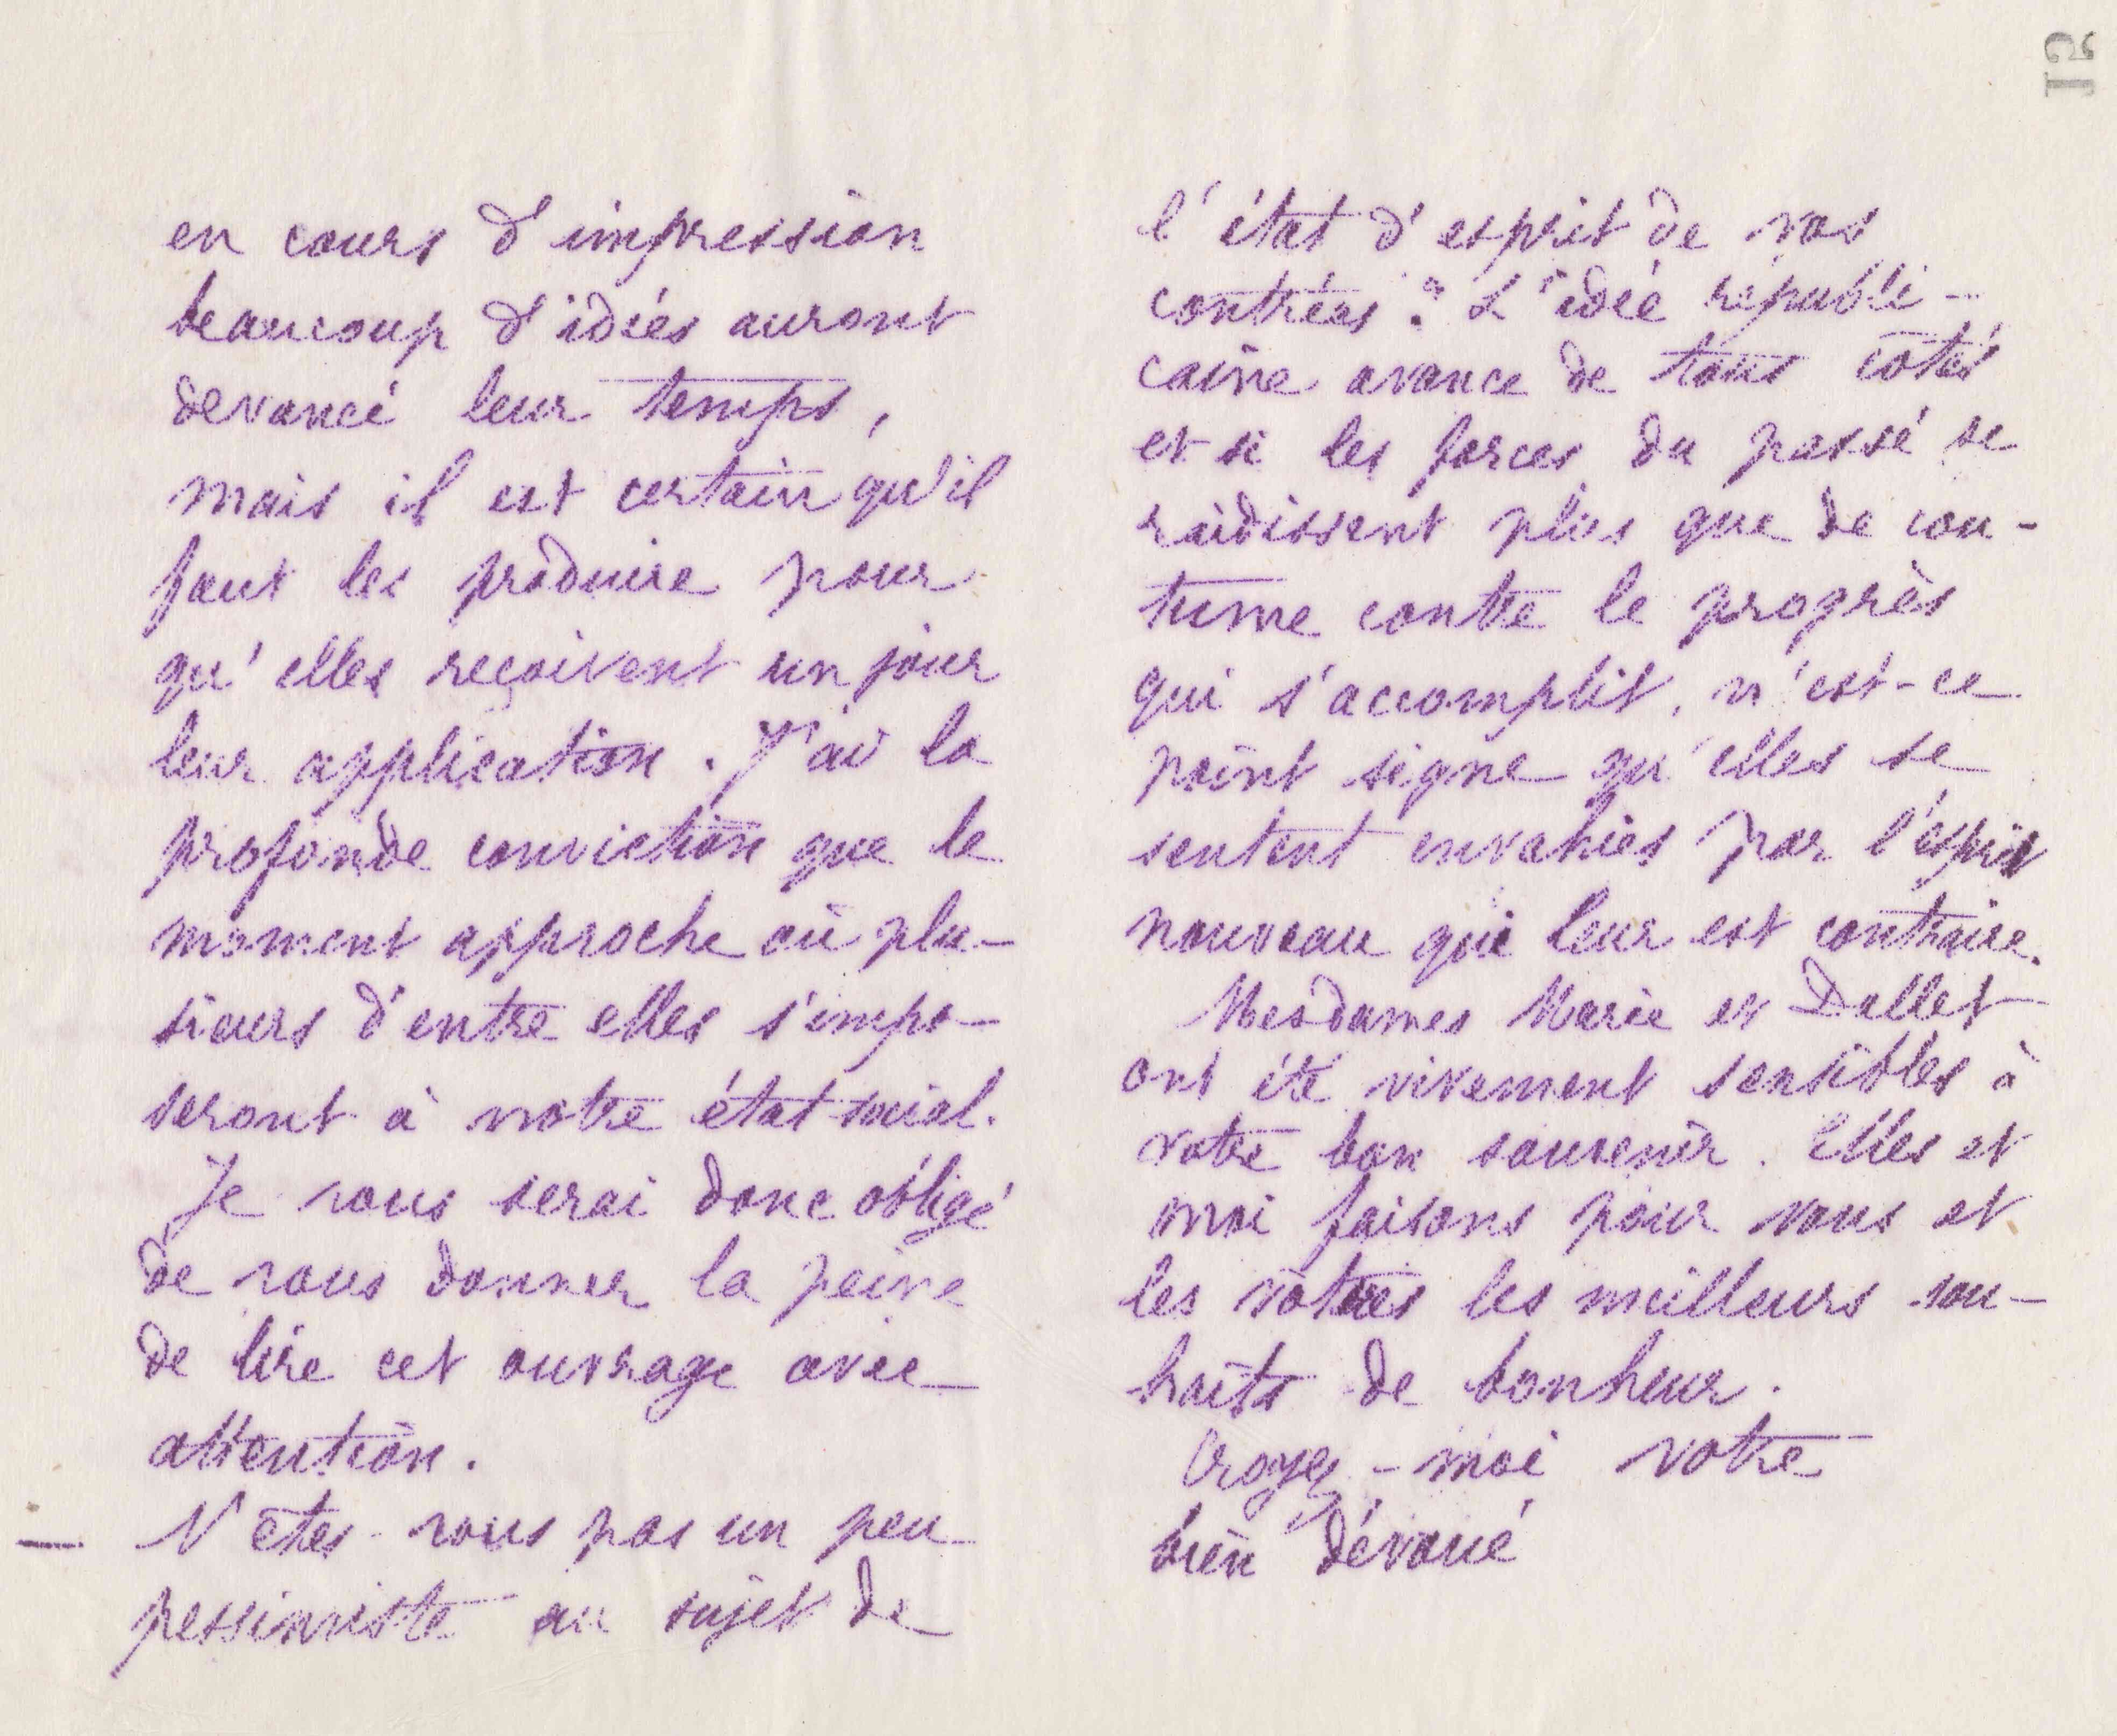 en cours d'impression
beaucoup d'idées auront
devancé leur temps,
mais il est certain qu'il
faut les produire pour
qu'elles reçoivent un jour
leur application. J'ai la
profonde conviction que le
moment approche où plu-
sieurs d'entre elles s'impo-
seront à notre état social.
Je vous serai donc obligé
de vous donner la peine
de lire cet ouvrage avec
attention.
— N'êtes-vous pas un peu
pessimiste au sujet de
15
l'état d'esprit de vos
contrées ? L'idée républi-
caine avance de tous côtés
et si les forces du passé se
raidissent plus que de cou-
tume contre le progrès
qui s'accomplit, n'est-ce
point signe qu'elles se
sentent envahies par l'esprit
nouveau qui leur est contraire.
Mesdames Marie et Dallet
ont été vivement sensibles à
votre bon souvenir. Elles et
moi faisons pour vous et
les vôtres les meilleurs sou-
haits de bonheur.
Croyez-moi votre
bien dévoué